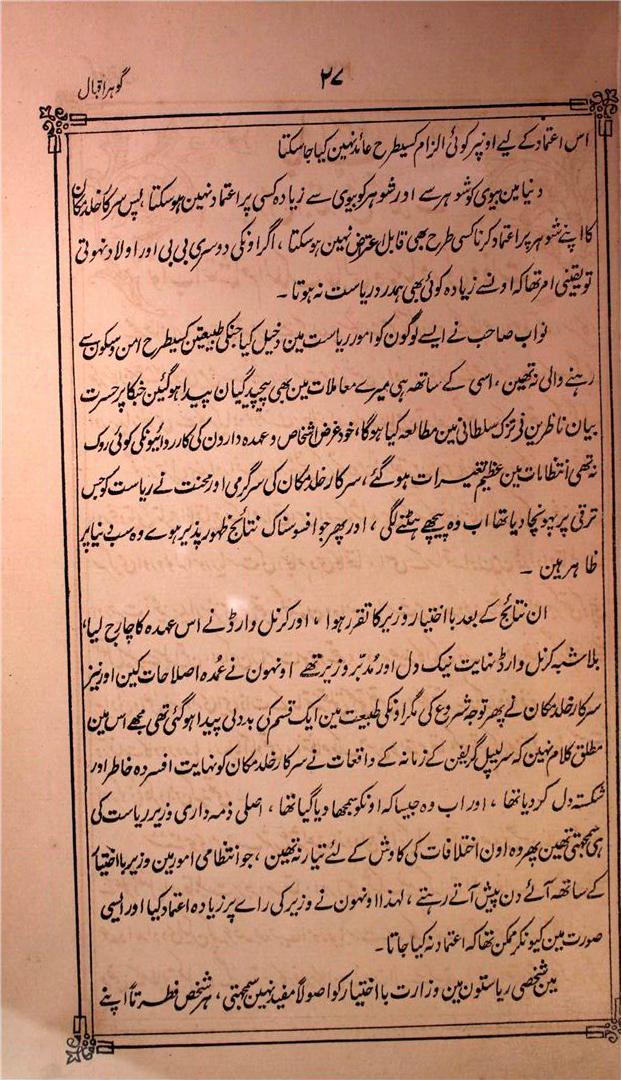 ۲۷
گوہر اقبال
اس اعتماد کے لیے اونپر کوئی الزام کسیطرح عائد نہین کیا جا سکتا
دنیا مین بیوی کو شوہر سے اور شوہر کو بیوی سے زیادہ کسی پر اعتماد نہین ہوسکتا پس سرکار خلد مکان
کا اپنے شوہر پر اعتماد کرنا کسی طرح بھی قابل اعتراض نہین ہوسکتا ، اگر اونکی دوسری بی بی اور اولاد نہوتی
تو یقینی امر تھا کہ اونسے زیادہ کوئی بھی ہمدرد ریاست نہ ہوتا ۔
نواب صاحب نے ایسے لوگون کو امور ریاست مین دخیل کیا جنکی طبیعتین کسیطرح امن و سکون سے
رہنے والی نتھین ، اسی کے ساتھ ہی میرے معاملات مین بھی پیچیدگیان پیدا ہوگئین جنکا پر حسرت
بیان ناظرین نے تزک سلطانی مین مطالعہ کیا ہوگا ، خود غرض اشخاص و عہدہ دارون کی کارردائیونکی کوئی روک
نہ تھی انتظامات مین عظیم تغیرات ہوگئے ، سرکار خلد مکان کی سرگرمی اور محنت نے ریاست کو جس
ترقی پر پہونچا دیا تھا اب وہ پیچھے ہٹنے لگی ، اور پھر جو افسوسناک نتائج ظہور پذیر ہوے وہ سب دنیا پر
ظاہر ہین ۔
ان نتائج کے بعد با اختیار وزیر کا تقرر ہوا ، اور کرنل وارڈ نے اس عہدہ کا چارج لیا ،
بلاشبہ کرنل وارڈ نہایت نیک دل اور مُدبّر وزیر تھے اونہون نے عُمدہ اصلاحات کین اور نیز
سرکار خلد مکان نے پھر توجہ شروع کی مگر اونکی طبیعت مین ایک قسم کی بددلی پیدا ہوگئی تھی مجھے اس مین
مطلق کلام نہین کہ سر لیپل گریفن کے زمانہ کے واقعات نے سرکار خلد مکان کو نہایت افسردہ خاطر اور
شکستہ دل کر دیا تھا ، اور اب وہ جیسا کہ اونکو سمجھا دیا گیا تھا ، اصلی ذمہ داری وزیر ریاست کی
ہی سمجھتی تھین پھر وہ اون اختلافات کی کاوش کے لئے تیار نہ تھین ، جو انتظامی امور مین وزیر با اختیار
کے ساتھ آئے دن پیش آتے رہتے ، لہذا اونہون نے وزیر کی راے پر زیادہ اعتماد کیا اور ایسی
صورت مین کیونکر ممکن تھا کہ اعتماد نہ کیا جاتا ۔
مین شخصی ریاستون مین وزارت با اختیار کو اصولاً مفید نہین سمجھتی ، ہر شخص فطرتاً اپنے